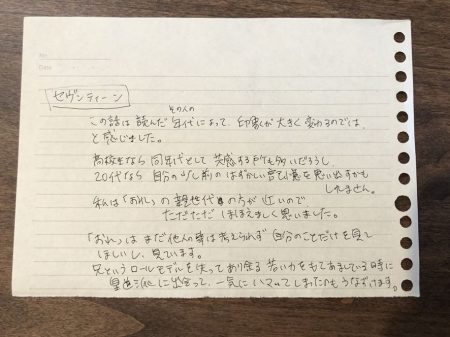 No.
Date
セヴンティーン
その人の
この話は 読んだ 年代によって、印象が 大きく 変わるのでは、
と感じました。
高校生なら 同年代として 共感する所も多いだろうし、
20代なら 自分の少し前の はずかしい 記憶を 思い出すかも
しれません。
私は「おれ」の 親世代の方が 近いので
ただただ ほほえましく 思いました。
「おれ」は まだ 他人の事は 考えられず 自分のことだけを 見て
ほしいし、見ています。
兄という ロールモデルを 失って あり余る 若い力を もてあましている時に
皇道派に 出会って、一気に ハマって しまったのも うなずけます。